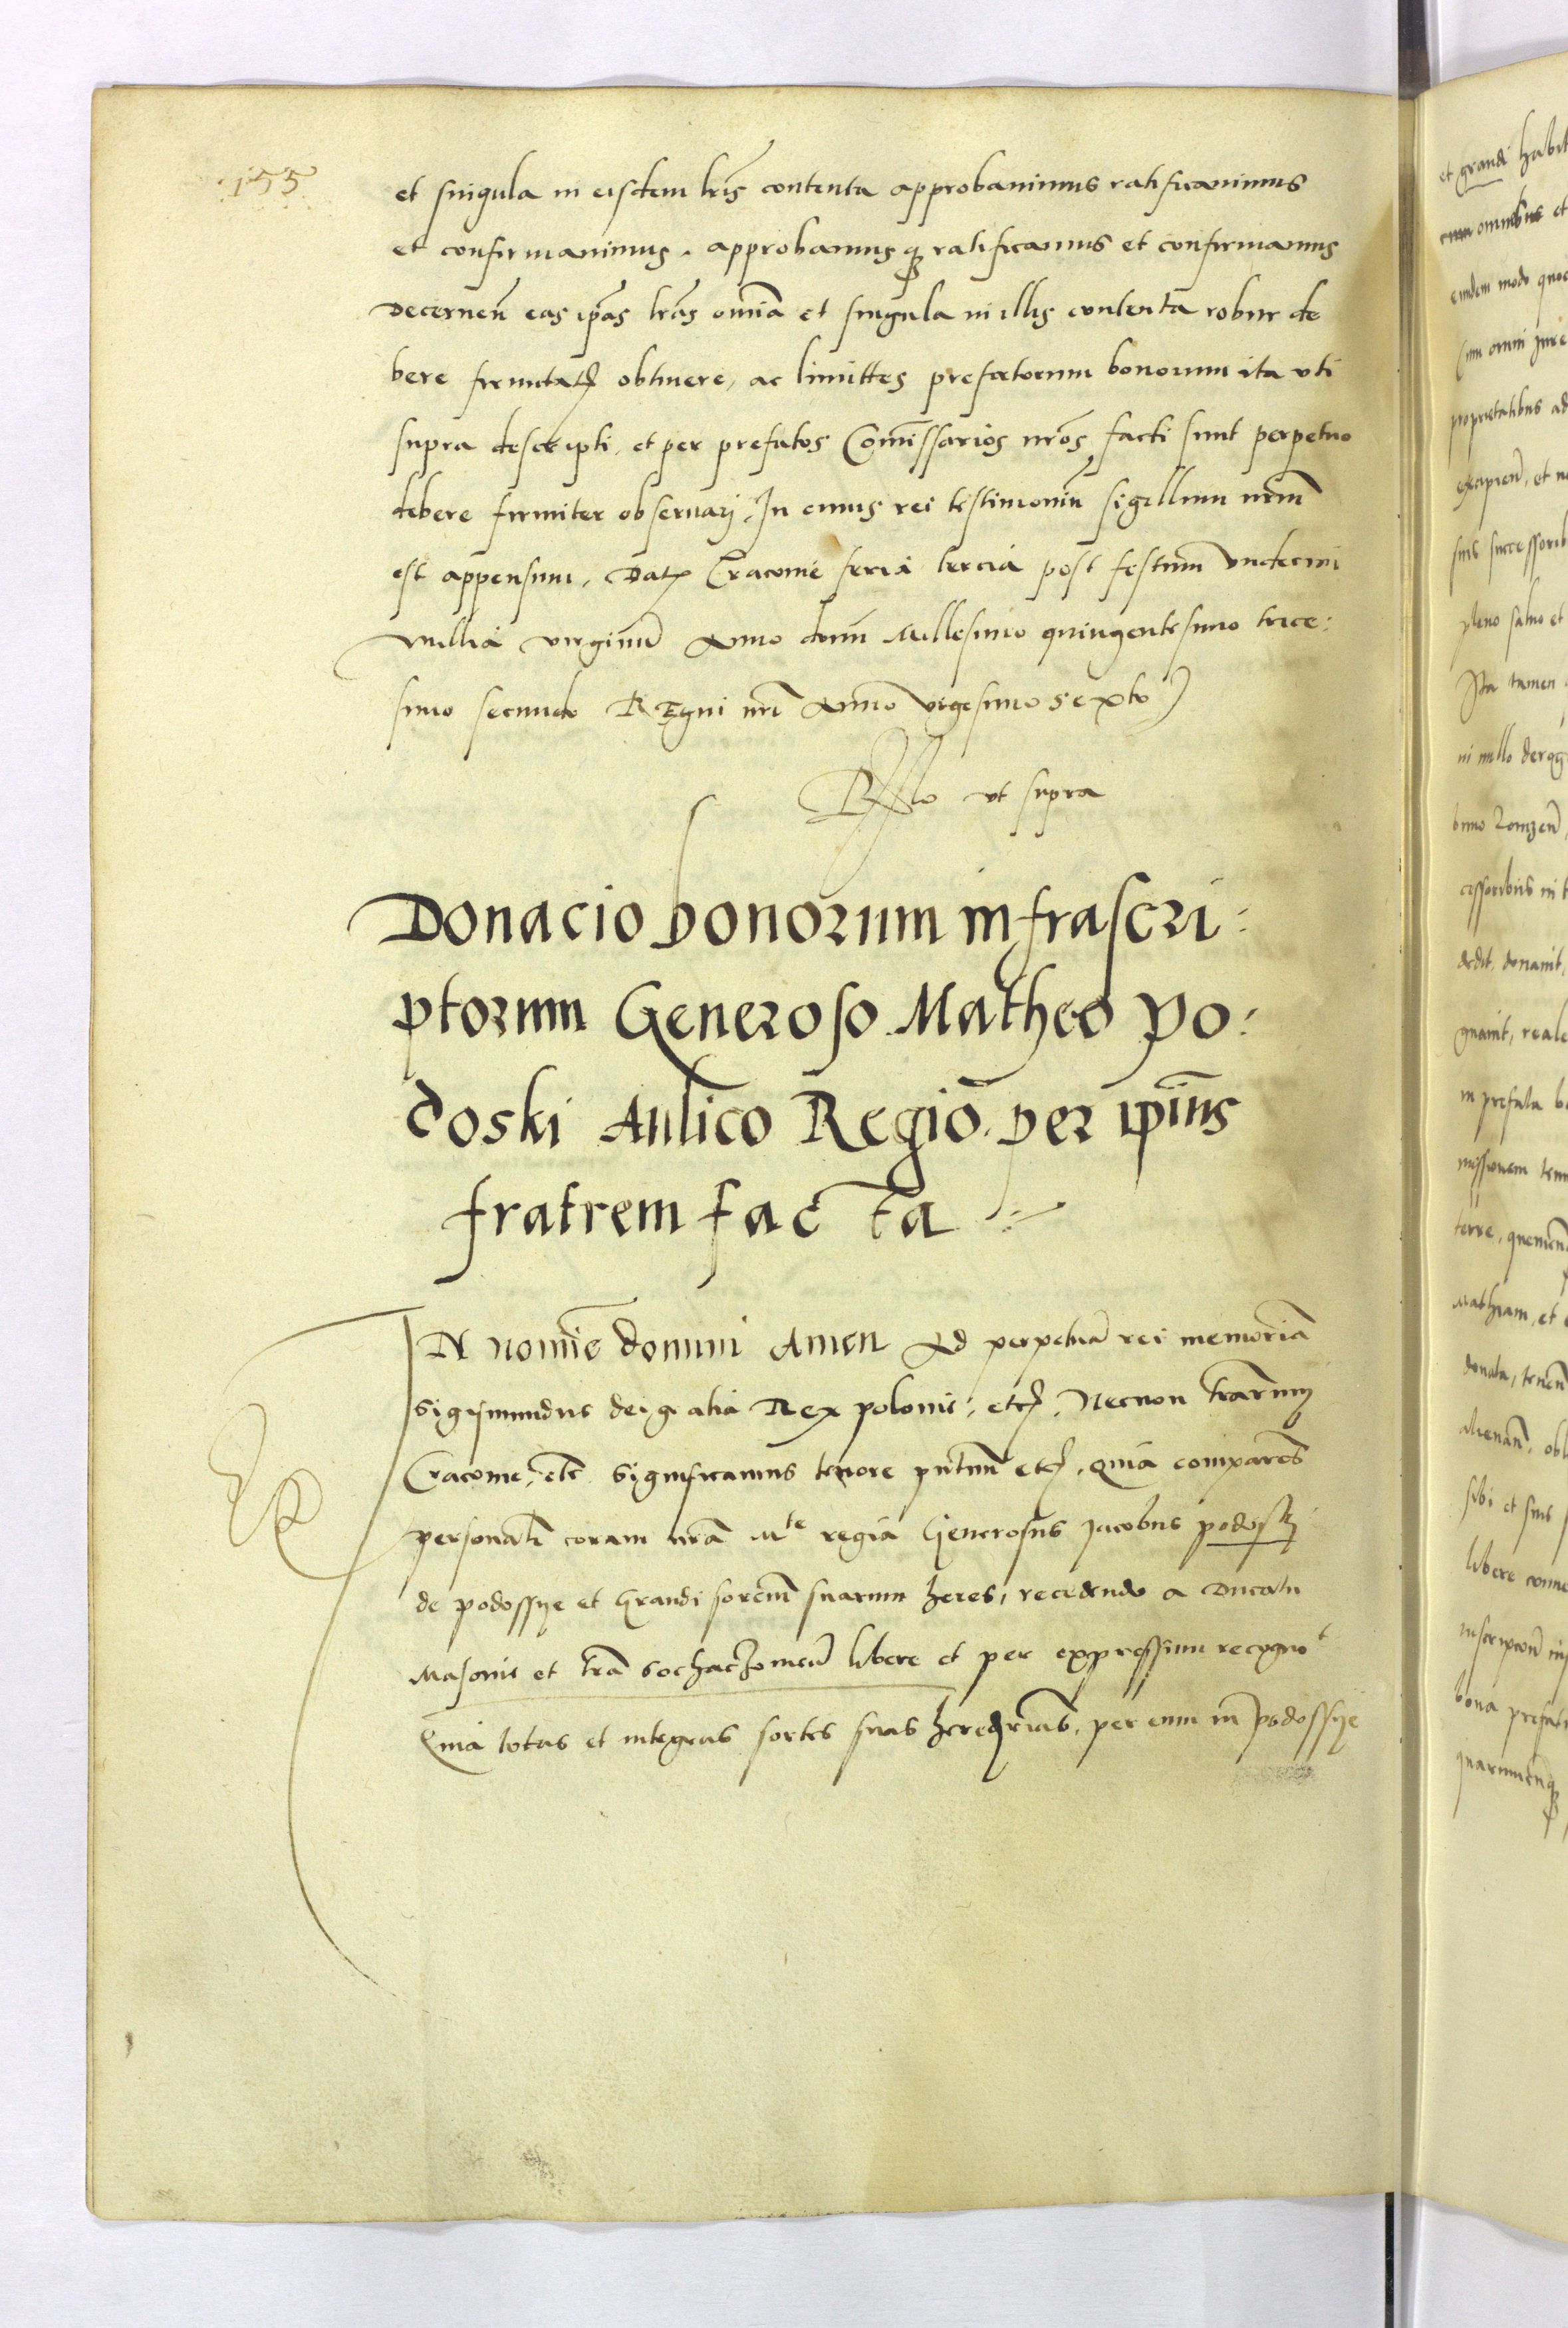 155
et singula in eisdem lr̃is contenta approbauimus ratificauimus
et confirmauimus. approbamusq̃ ratificamus et confirmamus
Decernen̄ eas ip̃as lr̃as om̃ia et singula in illis contenta robur de
bere firmitatꝭ obtinere, ac limittes prefatorum bonorum ita vti
supra descripti. et per prefatos Com̃issarios nr̃os facti sunt perpetuo
debere firmiter obseruarj. In cuius rei testimoniũ sigillum nr̃m
est appensum. Datꝭ Cracouie feria tercia post festum vndecim
millia virginũ Anno domĩ Millesimo quingentesimo trice:
simo secundo REgni nr̃i Anno vigesimo sexto
Rlõ vt supra
Donacio bonorum infrascri:
ptorum Generoso Matheo Po:
doski Aulico Regio. per ip̃ius
fratrem facta
IN nomĩe domini Amen Ad perpetuã rei memoriã
Sigismundus dei gratia Rex polonie: etcꝭ. Necnon tr̃arum
Cracouie, etc̃ Significamus tenore pn̄tium etcꝭ. quia comparen̄s
personalr̃ coram nr̃a Mte regia Generosus Jacobus podoskj
de podossye et Grandi sorcium suarum heres, recedendo a Ducatu
Masouie et tr̃a Sochaczouien̄ libere et per expressum recognot
Quia totas et integras sortes suas hereditarias, per eum in podossye
et grandi habit
cum omnibus et
eisdem modo quo
Cum omni Jure
proprietatibus ad
excipien̄, et n
suis successorib
pleno saluo et
Ita tamen
in nullo derog
cessoribus in
dedit. donauit,
gnauit, reale
in prefata b
missionem
terre, quemcun
Mathiam, et
donata, tenen̄
alienan̄, obl
sibi et suis
libere conue
inscripcion̄ in
bona prefat
quarumcunq̃